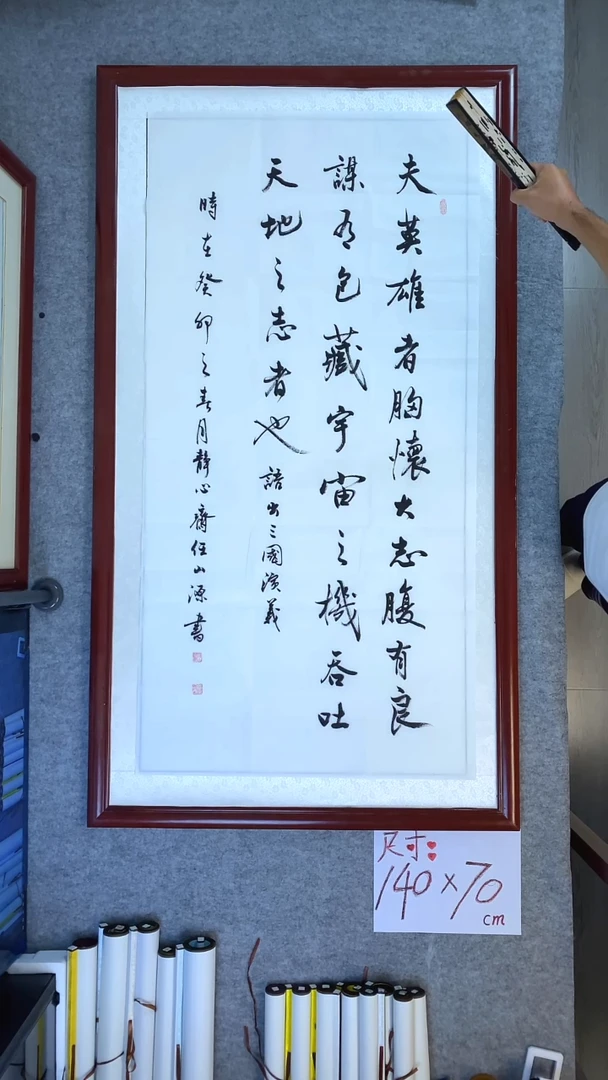 夫英雄者胸懷大志腹有良
謀有包藏宇宙之機吞吐
天地之志者也 語出三國演義
時在癸卯之春月靜心齋任山源書
尺寸:
140×70
cm